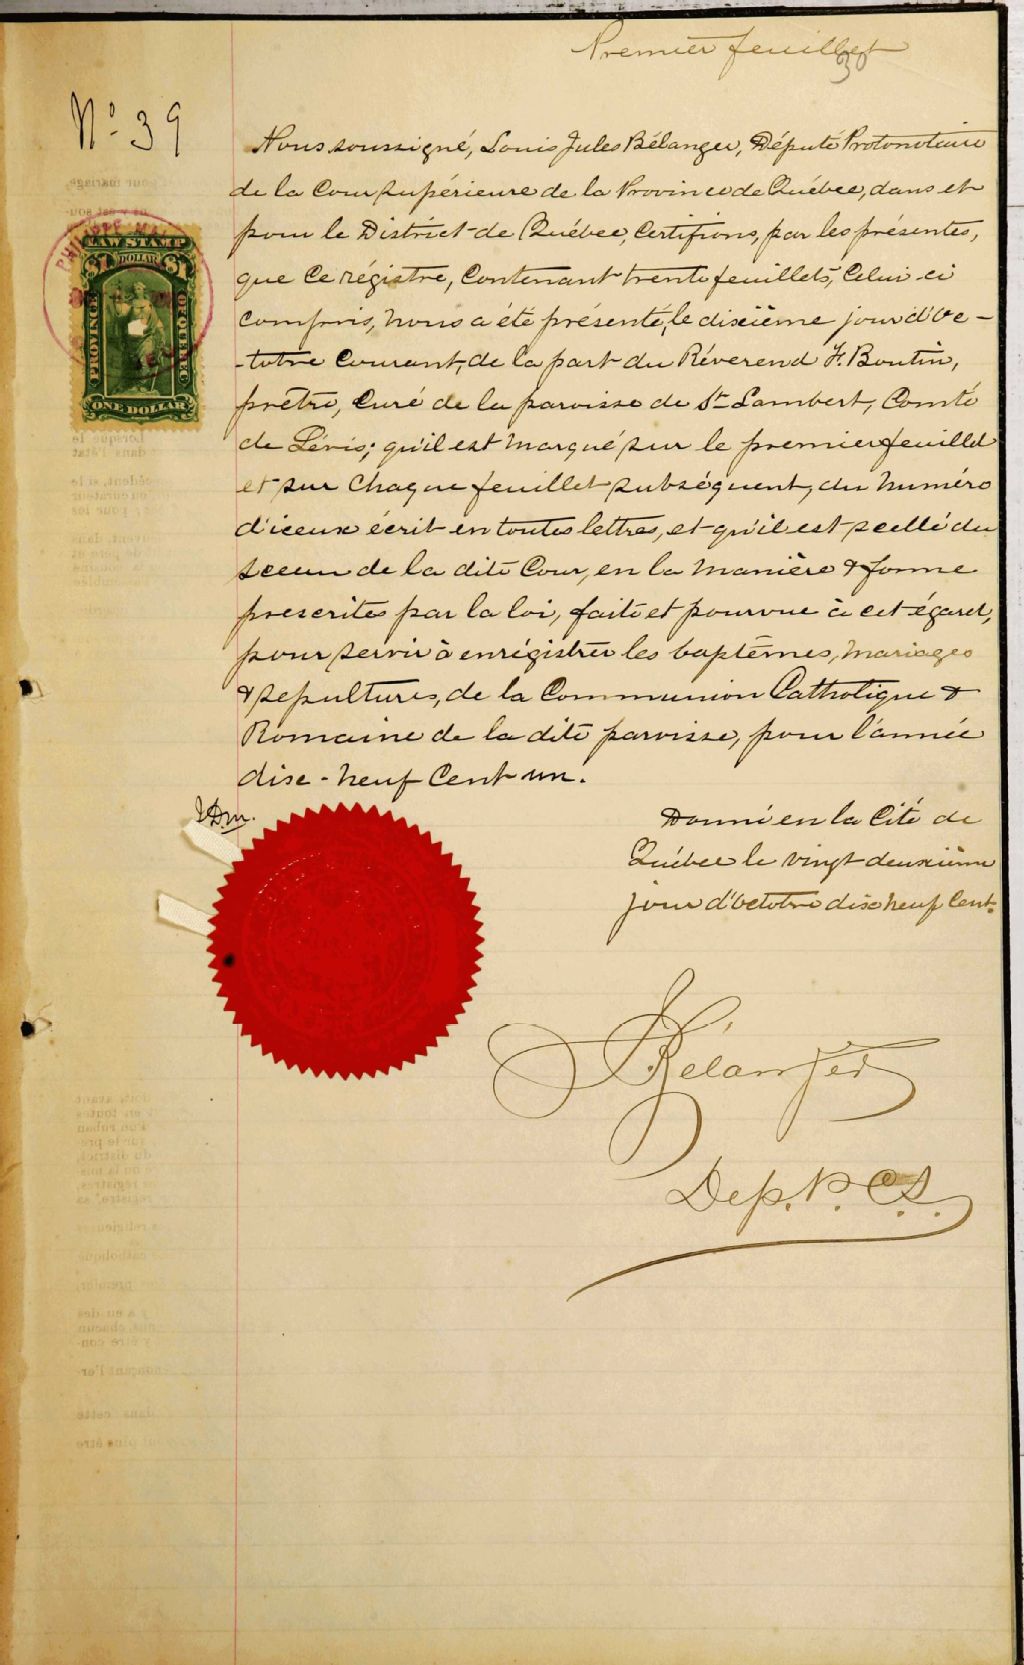 Premier feuillet
30
No 39
Nous soussigné, Louis Jules Bélanger, Député Protonotaire
de la Cour Supérieure de la Province de Québec, dans et
pour le District de Québec, Certifions, par les présentes,
que ce régistre, contenant trente feuillets, celui-ci
compris, nous a été présenté, le dixième jour d'Oc-
-tobre courant, de la part du Réverend F. Boutin,
prêtre, curé de la paroisse de St Lambert, Comté
de Lévis; qu'il est marqué sur le premier feuillet
et sur chaque feuillet subséquent, du numéro
d'iceux écrit en toutes lettres, et qu'il est scellé du
sceau de la dite Cour, en la manière & forme
prescrites par la loi, faite et pourvue à cet égard,
pour servir à enrégistrer les baptêmes, mariages
& sepultures, de la Communion Catholique &
Romaine de la dite paroisse, pour l'année
dix-neuf cent un.
Donné en la Cité de
Québec le vingt deuxième
jour d'Octobre dix neuf cent.
LJ Bélanger
Dep. P. C.S.
LAW STAMP
$1 DOLLAR $1
PROVINCE
OF QUEBEC
ONE DOLLAR
PHILIPPE